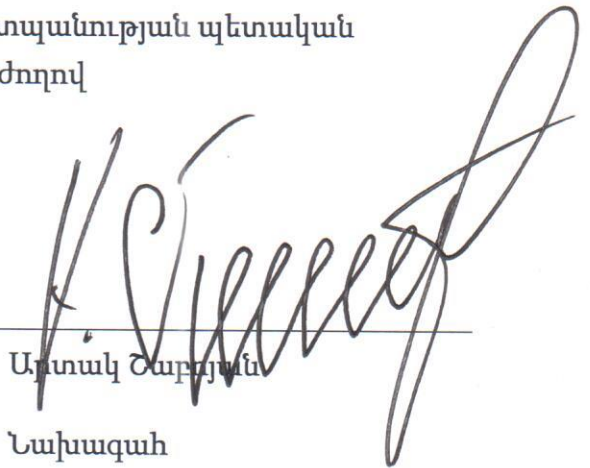 տպանության պետական
ժողով
Արտակ Շաբոյան
Նախագահ